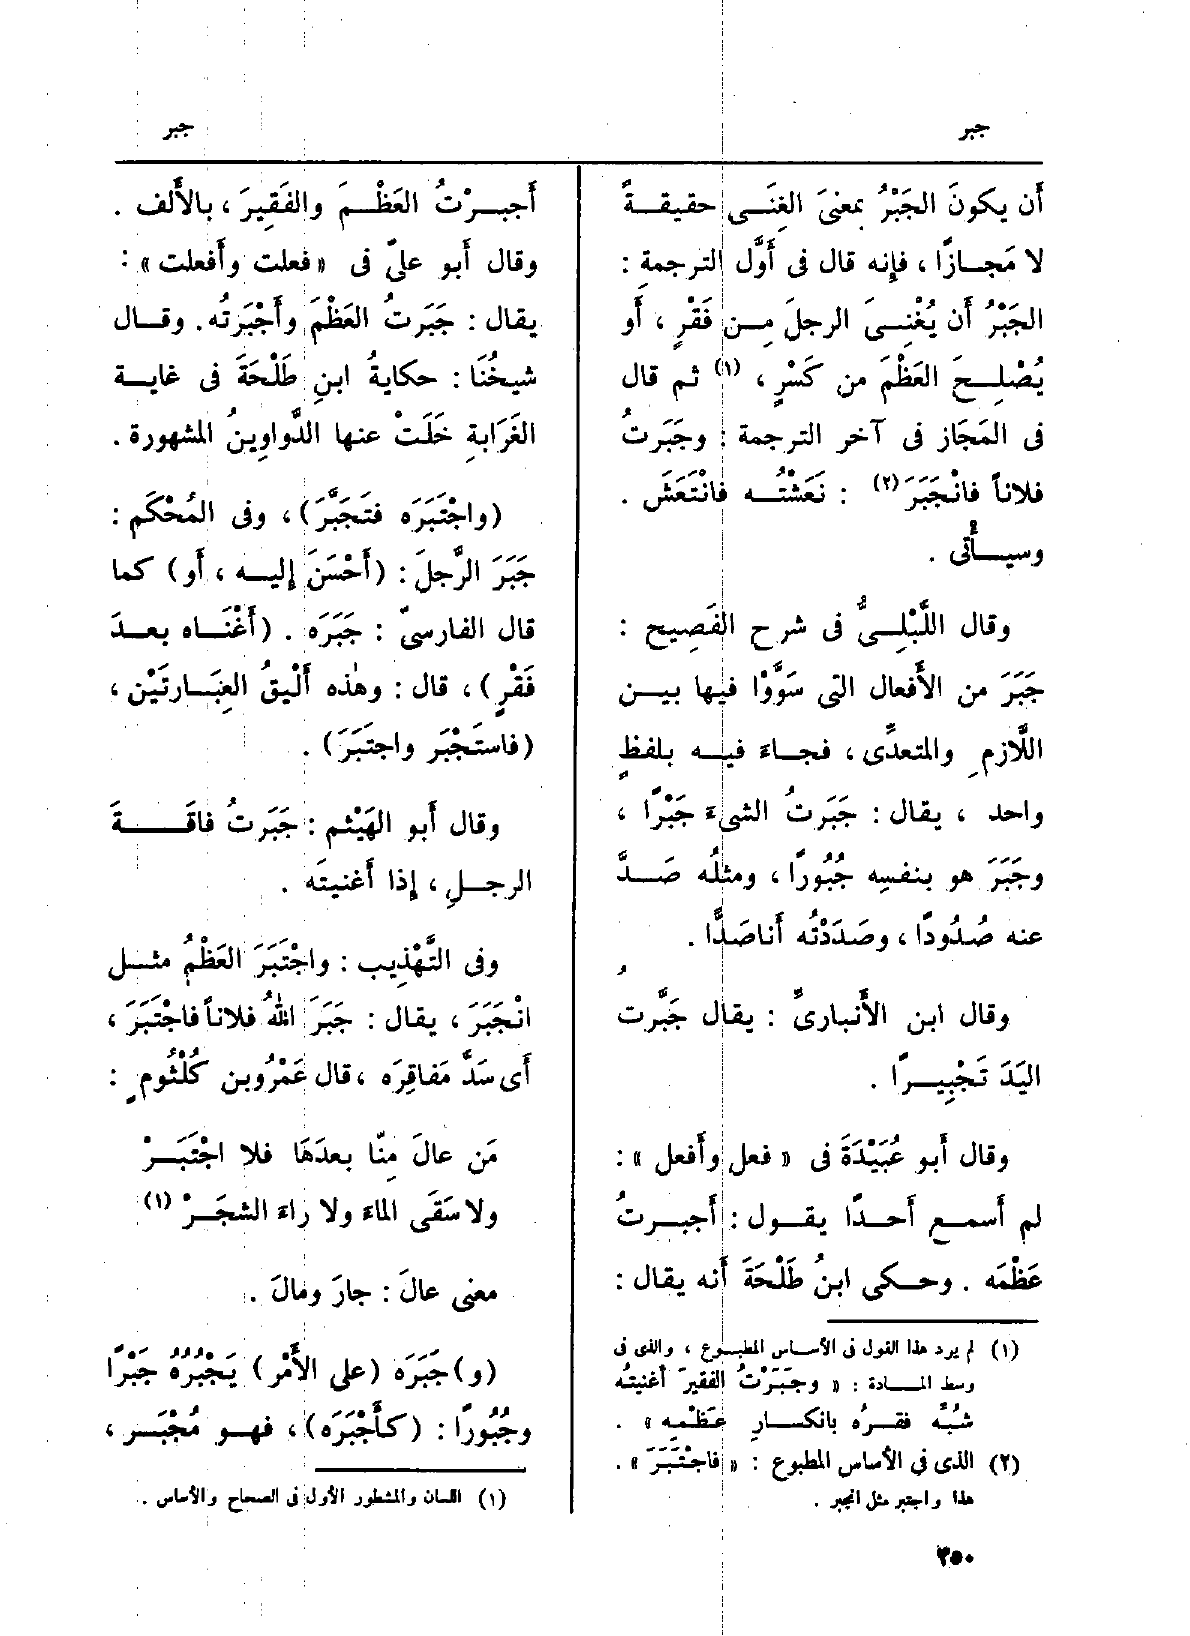 جبر
جبر
أَن يكونَ الجَبْرُ بمعنَى الغِنَى حقيقةً
لا مَجازًا ، فإنه قال فى أَوَّل الترجمةِ :
الجَبْرُ أَن يُغْنِىَ الرجلَ مِن فَقْرٍ ، أَو
يُصْلِحَ العَظْمَ من كَسْرٍ ، (١) ثم قال
فى المَجَاز فى آخر الترجمة : وجَبَرتُ
فلاناً فانْجَبَرَ (٢) : نَعَشْتُه فانْتَعَشَ .
وسيأْتى .
وقال اللَّبْلِىُّ فى شرح الفَصِيح :
جَبَرَ من الأَفعال التى سَوَّوْا فيها بين
اللَّازمِ والمتعدِّى ، فجاءَ فيه بلفظٍ
واحد ، يقال : جَبَرتُ الشىءَ جَبْرًا ،
وجَبَرَ هو بنفسِه جُبُورًا ، ومثلُه صَدَّ
عنه صُدُودًا ، وصَدَدْتُه أَناصَدًّا .
وقال ابن الأَنبارىِّ : يقال جَبَّرتُ
اليَدَ تَجْبِيرًا .
وقال أَبو عُبَيْدَةَ فى « فعل وأَفعل » :
لم أَسمع أَحدًا يقول : أَجبرتُ
عَظْمَه . وحكى ابنُ طَلْحَةَ أَنه يقال :
(١) لم يرد هذا القول فى الأساس المطبوع ، والذى فى
وسط المادة : « وجَبَرْتُ الفقيرَ أغنيتُه
شُبِّه فقرُه بانكسارِ عَظْمِه » .
(٢) الذى فى الأساس المطبوع : « فاجْتَبَرَ » .
هذا واجتبر مثل انجبر .
أَجبرْتُ العَظْمَ والفَقِيرَ ، بالأَلف .
وقال أَبو علىّ فى « فعلت وأَفعلت » :
يقال : جَبَرتُ العَظْمَ وأَجْبَرتُه . وقال
شيخُنَا : حكايةُ ابنِ طَلْحَةَ فى غاية
الغَرَابةِ خَلَتْ عنها الدَّواوِينُ المشهورة .
(واجْتَبَرَه فتَجَبَّرَ) ، وفى المُحْكَم :
جَبَرَ الرَّجلَ : (أَحْسَنَ إليه ، أَو) كما
قال الفارسىّ : جَبَرَه . (أَغْنَاه بعدَ
فَقْرٍ) ، قال : وهٰذه أَلْيقُ العِبَارتَيْن ،
(فاستَجْبَر واجتَبَرَ) .
وقال أَبو الهَيْثم : جَبَرتُ فاقَةَ
الرجلِ ، إذا أَغنيتَه .
وفى التَّهْذِيب : واجْتَبَرَ العَظْمُ مثل
انْجَبَرَ ، يقال : جَبَرَ اللهُ فلاناً فاجْتَبَرَ ،
أَى سَدَّ مَفاقِرَه ، قال عَمْرُو بن كُلْثُومٍ :
مَن عالَ مِنَّا بعدَهَا فلا اجْتَبَرْ
ولا سَقَى الماءَ ولا راءَ الشجَرْ (١)
معنى عالَ : جارَ ومالَ .
(و) جَبَرَه (على الأَمْرِ) يَجْبُرُهُ جَبْرًا
وجُبُورًا : (كأَجْبَرَه) ، فهو مُجْبَر ،
(١) اللسان والمشطور الأول فى الصحاح والأساس .
٣٥٠